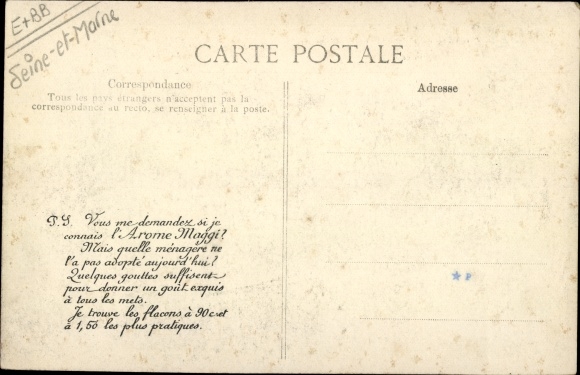 E+BB
Seine-et-Marne
CARTE POSTALE
Correspondance
Tous les pays étrangers n'acceptent pas la
correspondance au recto, se renseigner à la poste.
Adresse
P.S. Vous me demandez si je
connais l'Arome Maggi?
Mais quelle ménagère ne
l'a pas adopté aujourd'hui?
Quelques gouttes suffisent
pour donner un goût exquis
à tous les mets.
Je trouve les flacons à 90c et
à 1,50 les plus pratiques.